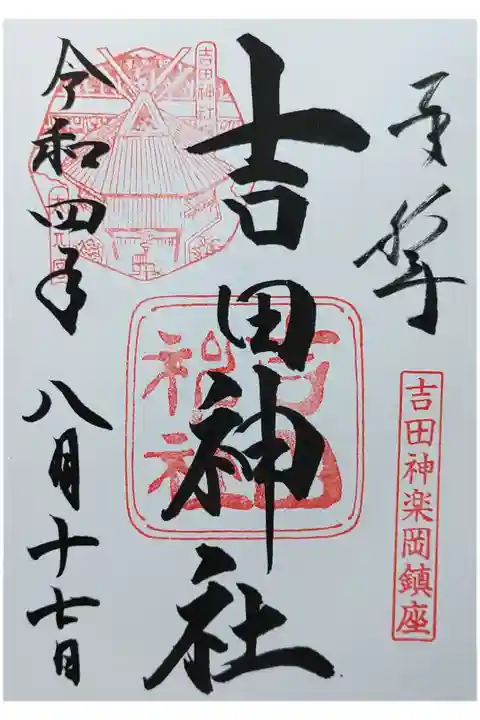 奉拝
吉田神楽岡鎮座
吉田神社
吉田神社
吉田神社
令和四年八月十七日